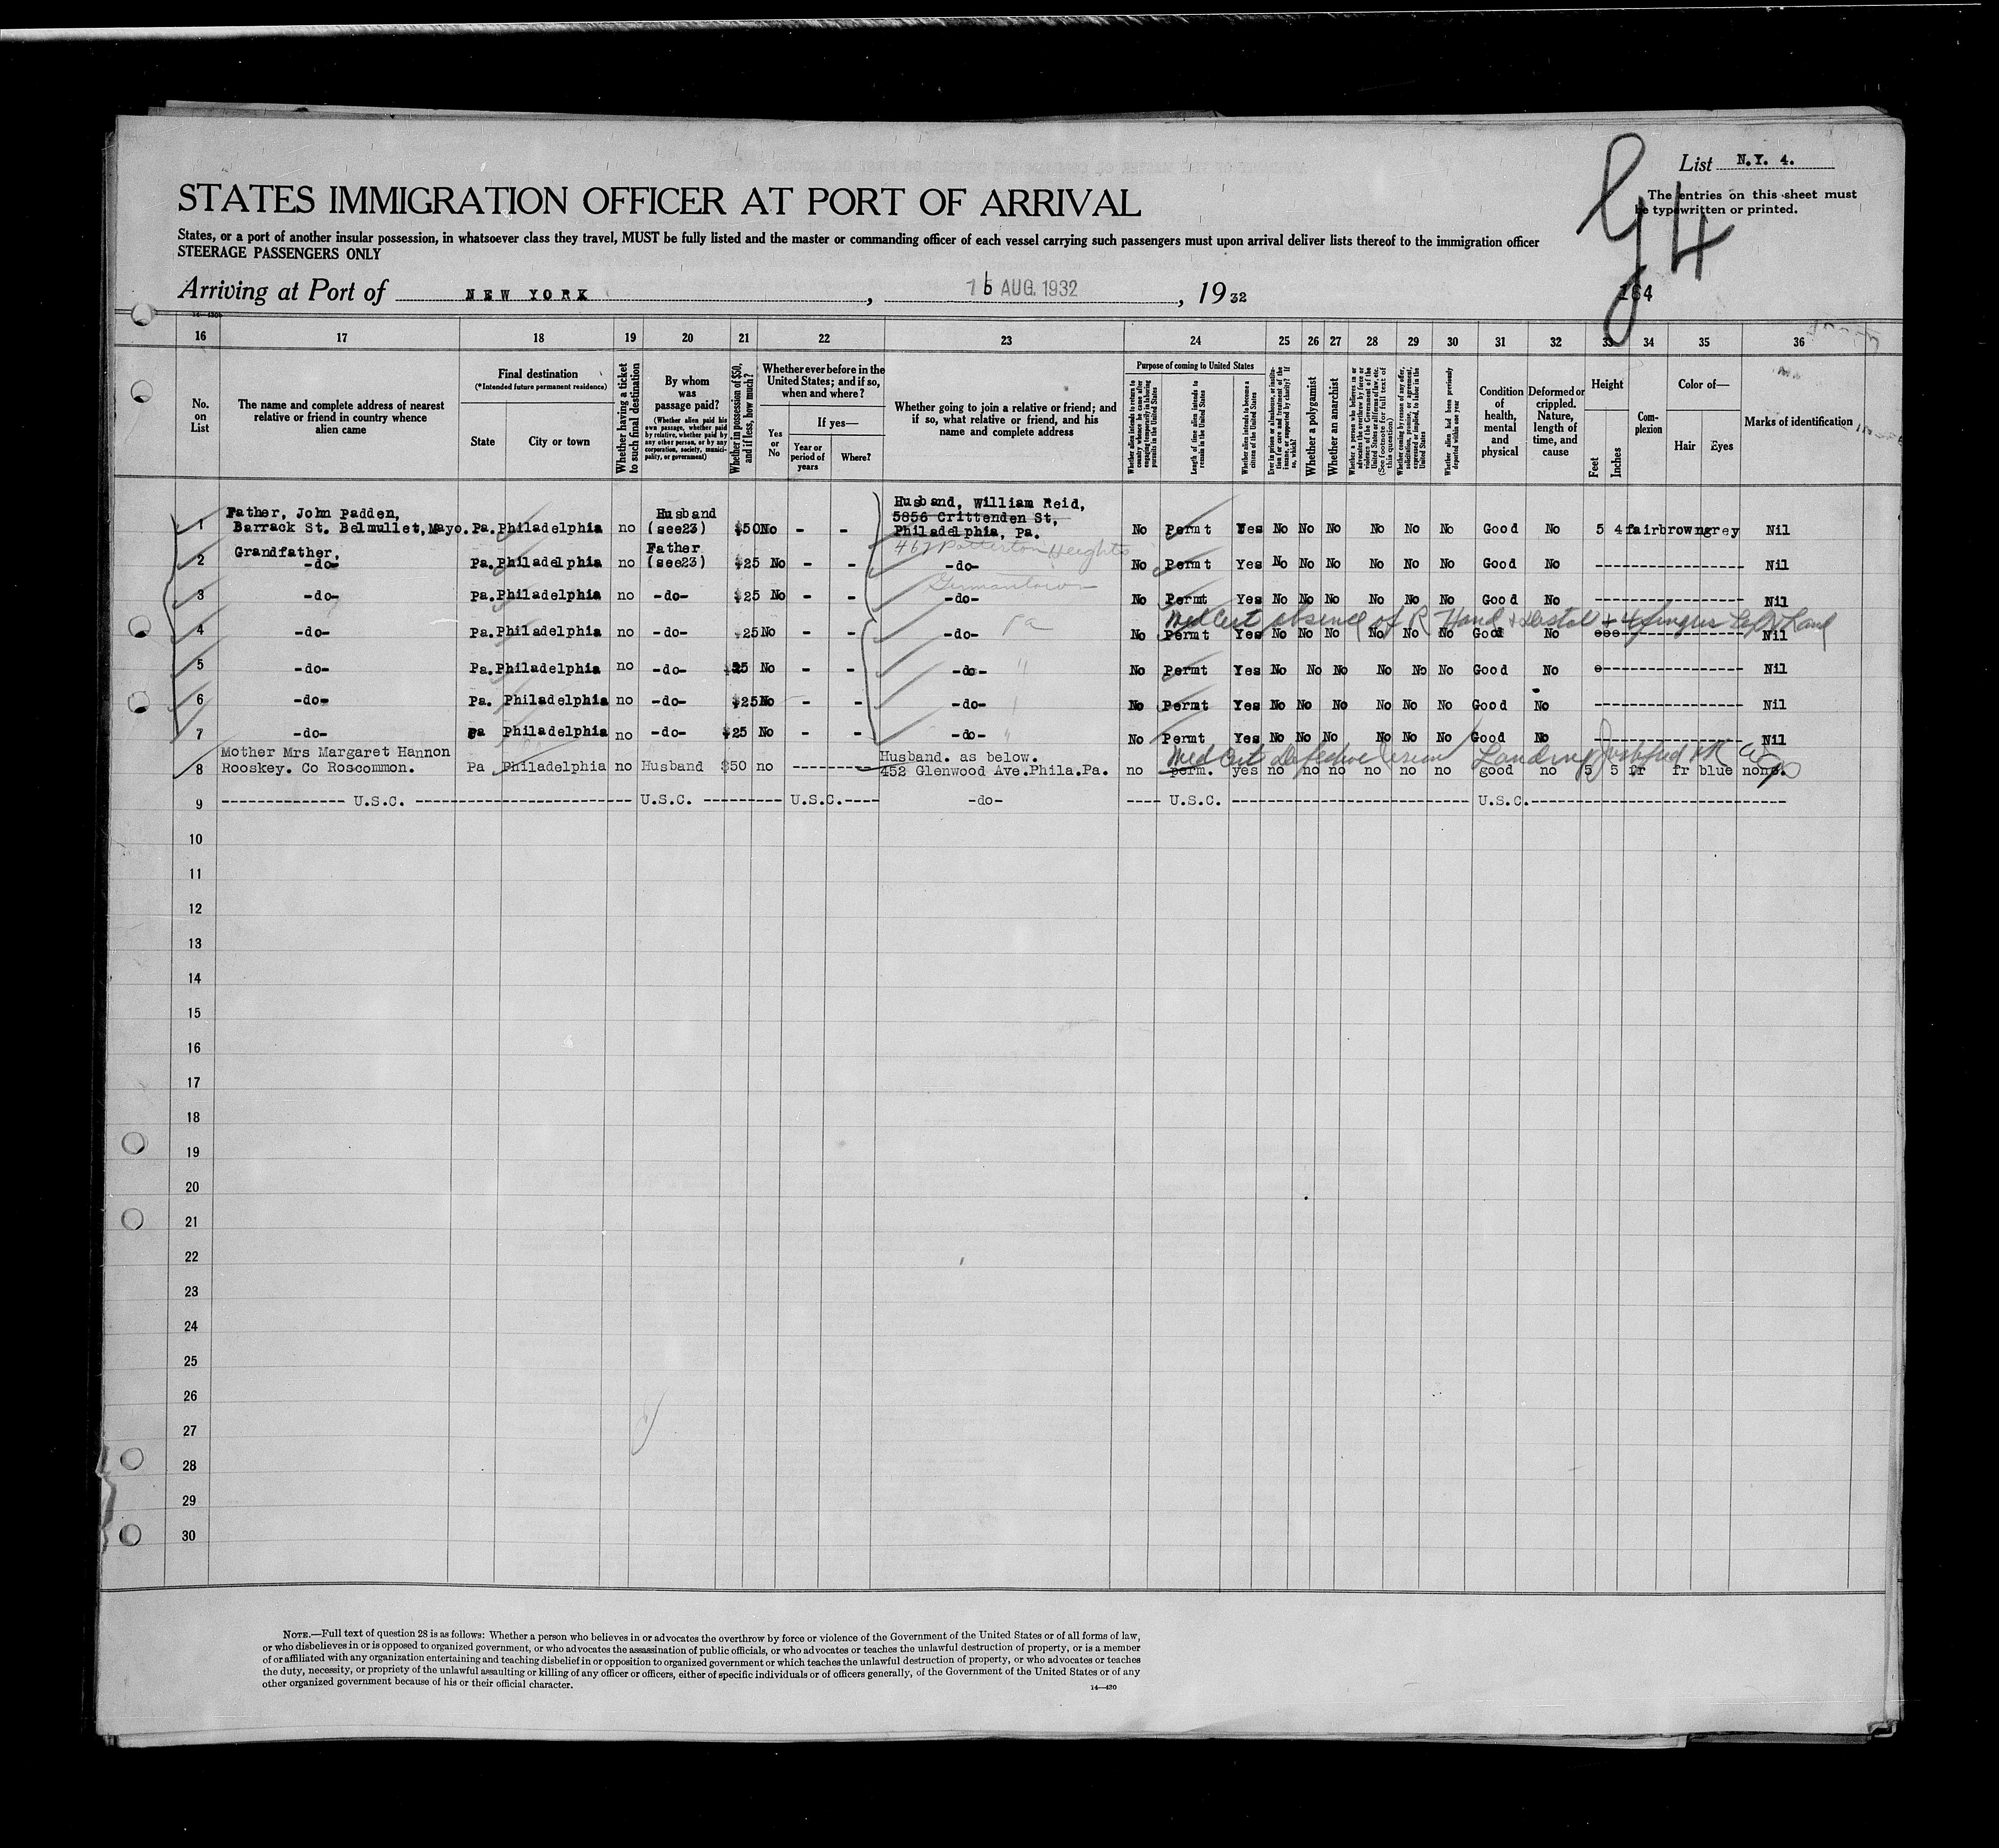 List N.Y. 4.
STATES IMMIGRATION OFFICER AT PORT OF ARRIVAL
The entries on this sheet must
be typewritten or printed.
States, or a port of another insular possession, in whatsoever class they travel, MUST be fully listed and the master or commanding officer of each vessel carrying such passengers must upon arrival deliver lists thereof to the immigration officer
STEERAGE PASSENGERS ONLY
Arriving at Port of NEW YORK, 16 AUG. 1932, 1932
164
16 17 18 19 20 21 22 23 24 25 26 27 28 29 30 31 32 33 34 35 36
No. on List
The name and complete address of nearest relative or friend in country whence alien came
Final destination
(*Intended future permanent residence)
State
City or town
Whether having a ticket to such final destination
By whom was passage paid?
(Whether alien paid his own passage, whether paid by relative, whether paid by any other person, or by any corporation, society, municipality, or government)
Whether in possession of $50, and if less, how much?
Whether ever before in the United States; and if so, when and where?
Yes or No
If yes—
Year or period of years
Where?
Whether going to join a relative or friend; and if so, what relative or friend, and his name and complete address
Purpose of coming to United States
Whether alien intends to return to country whence he came after engaging temporarily in laboring pursuits in the United States
Length of time alien intends to remain in the United States
Whether alien intends to become a citizen of the United States
Ever in prison or almshouse, or institution for care and treatment of the insane, or supported by charity? If so, which?
Whether a polygamist
Whether an anarchist
Whether a person who believes in or advocates the overthrow by force or violence of the Government of the United States or all forms of law, etc. (See footnote for full text of this question)
Whether coming by reason of any offer, solicitation, promise, or agreement, expressed or implied, to labor in the United States
Whether alien had been previously deported within one year
Condition of health, mental and physical
Deformed or crippled. Nature, length of time, and cause
Height
Feet
Inches
Complexion
Color of—
Hair
Eyes
Marks of identification
1 Father, John Padden, Barrack St. Belmullet, Mayo. Pa. Philadelphia no Husband (see23) $50 No - - Husband, William Reid, 5856 Crittenden St, Philadelphia, Pa. No Permt Yes No No No No No No Good No 5 4 fair brown grey Nil
2 Grandfather, -do- Pa. Philadelphia no Father (see23) $25 No - - -do- No Permt Yes No No No No No No Good No ---- Nil
Germantown
3 -do- Pa. Philadelphia no -do- $25 No - - -do- No Permt Yes No No No No No No Good No ---- Nil
Med Cert absence of R Hand
Pa
4 -do- Pa. Philadelphia no -do- $25 No - - -do- No Permt Yes No No No No No No Good No ---- Nil
5 -do- Pa. Philadelphia no -do- $25 No - - -do- " No Permt Yes No No No No No No Good No ---- Nil
6 -do- Pa. Philadelphia no -do- $25 No - - -do- No Permt Yes No No No No No No Good No ---- Nil
7 -do- Pa Philadelphia no -do- $25 No - - -do- " No Permt Yes No No No No No No Good No ---- Nil
Med Cert Defective Vision Landing justified
8 Mother Mrs Margaret Hannon Rooskey. Co Roscommon. Pa Philadelphia no Husband $50 no ---- Husband. as below. 452 Glenwood Ave. Phila. Pa. no perm. yes no no no no no no good no 5 5 fr fr blue none.
9 ---- U.S.C. ---- U.S.C. ---- U.S.C. ---- -do- ---- U.S.C. ---- U.S.C. ----
10
11
12
13
14
15
16
17
18
19
20
21
22
23
24
25
26
27
28
29
30
NOTE.—Full text of question 28 is as follows: Whether a person who believes in or advocates the overthrow by force or violence of the Government of the United States or of all forms of law,
or who disbelieves in or is opposed to organized government, or who advocates the assassination of public officials, or who advocates or teaches the unlawful destruction of property, or is a member
of or affiliated with any organization entertaining and teaching disbelief in or opposition to organized government or which teaches the unlawful destruction of property, or who advocates or teaches
the duty, necessity, or propriety of the unlawful assaulting or killing of any officer or officers, either of specific individuals or of officers generally, of the Government of the United States or of any
other organized government because of his or their official character.
14—430